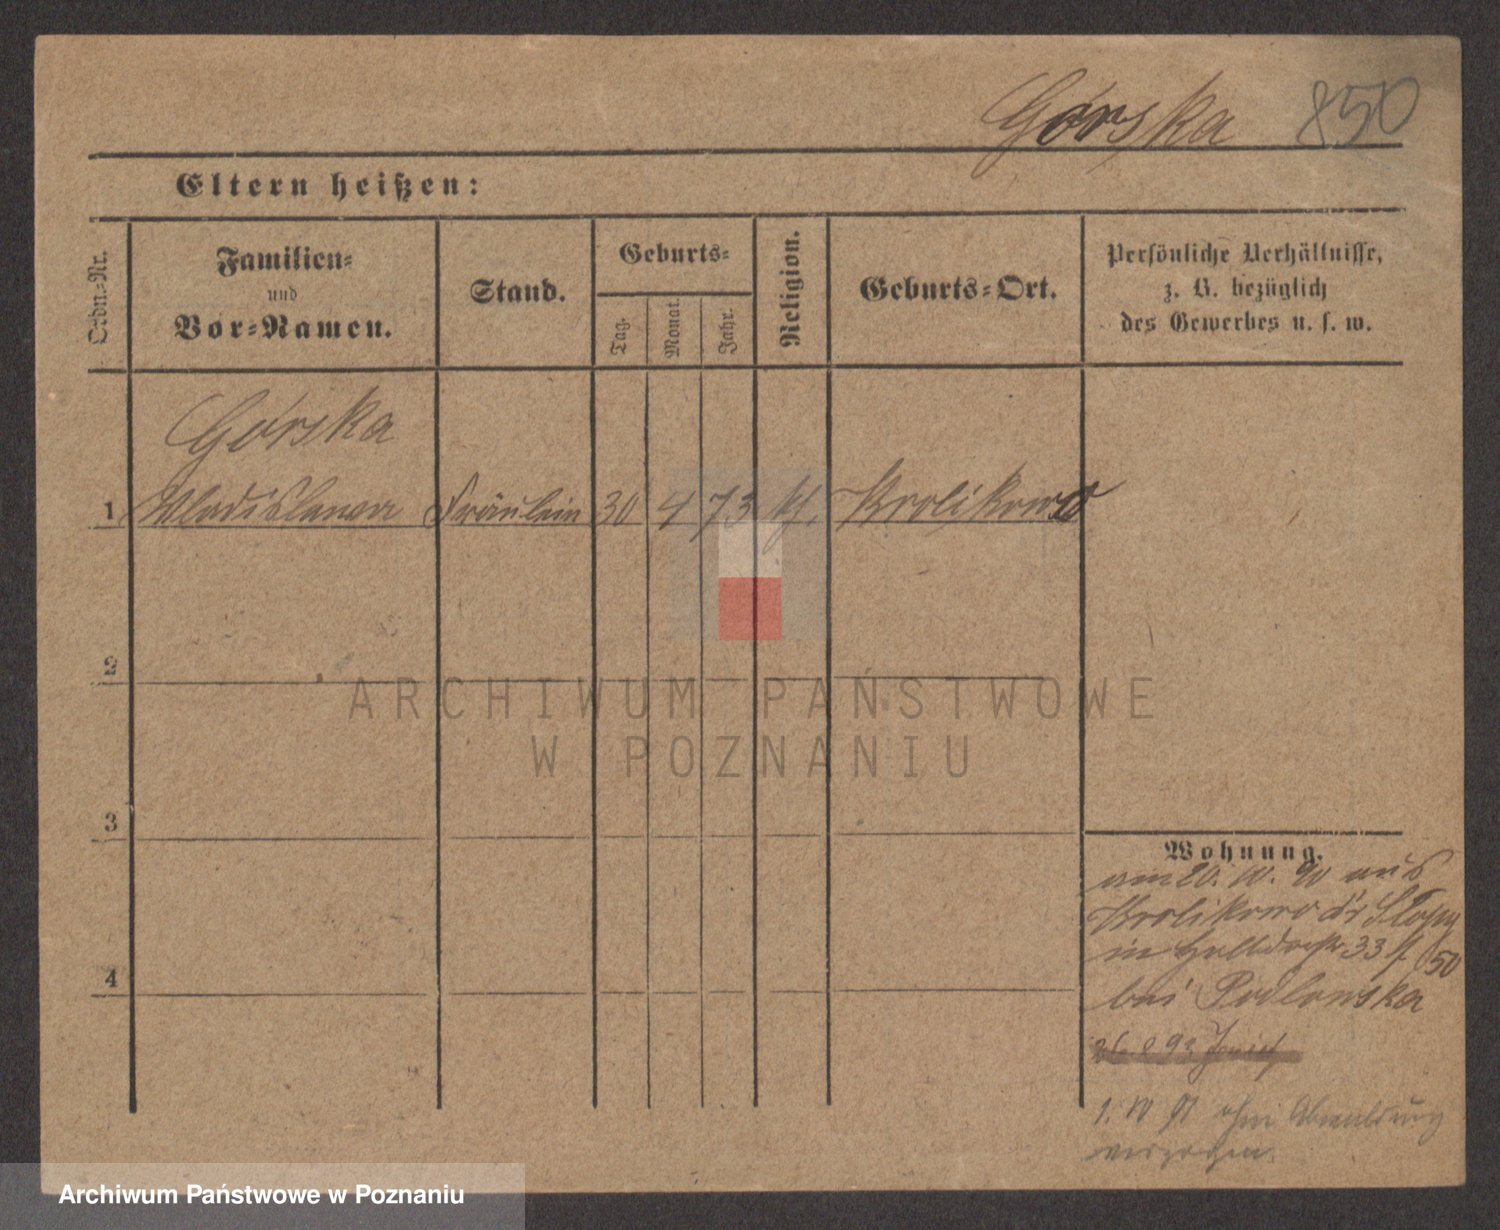 Górska 850
Eltern heißen:
Ordn.-Nr.
Familien-
und
Vor-Namen.
Stand.
Geburts-
Tag.
Monat.
Jahr.
Religion.
Geburts-Ort.
Persönliche Verhältnisse,
z. B. bezüglich
des Gewerbes u. s. w.
Górska
1 Wladislawa Fräulein 30 4 73 kt. Krolikowo
2
3
4
Wohnung.
am 20. 10. 90 aus
Krolikowo
in 33 50
bei
1. 10 91 ohne Abmeldung
verzogen.
ARCHIWUM PAŃSTWOWE
W POZNANIU
Archiwum Państwowe w Poznaniu